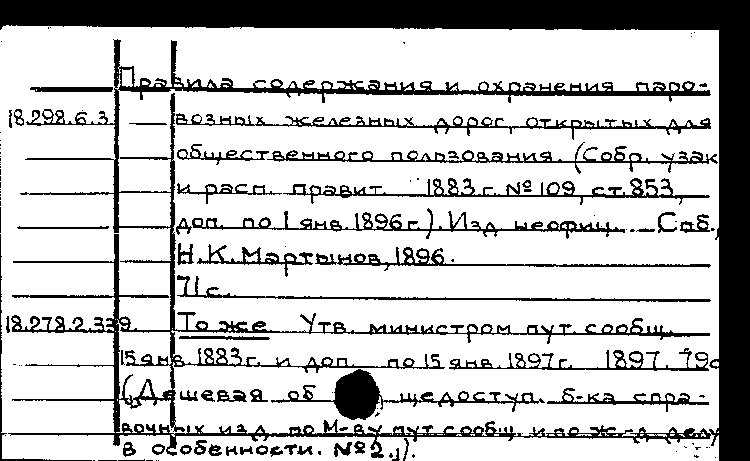 Правила содержания и охранения паро-
18.298.6.3 возных железных дорог, открытых для
общественного пользования. (Собр. узак
и расп. правит. 1883 г. № 109, ст. 853,
доп. по 1 янв. 1896 г.). Изд. неофиц. Спб.,
Н.К. Мартынов, 1896.
71 с.
18.278.2.339. То же Утв. министром пут. сообщ.
15 янв. 1883 г. и доп. по 15 янв. 1897 г. 1897. 79с
(Дешевая об щедоступ. б-ка спра-
вочных изд. по М-ву пут. сообщ. и по ж.-д. делу
в особенности. № 2.).